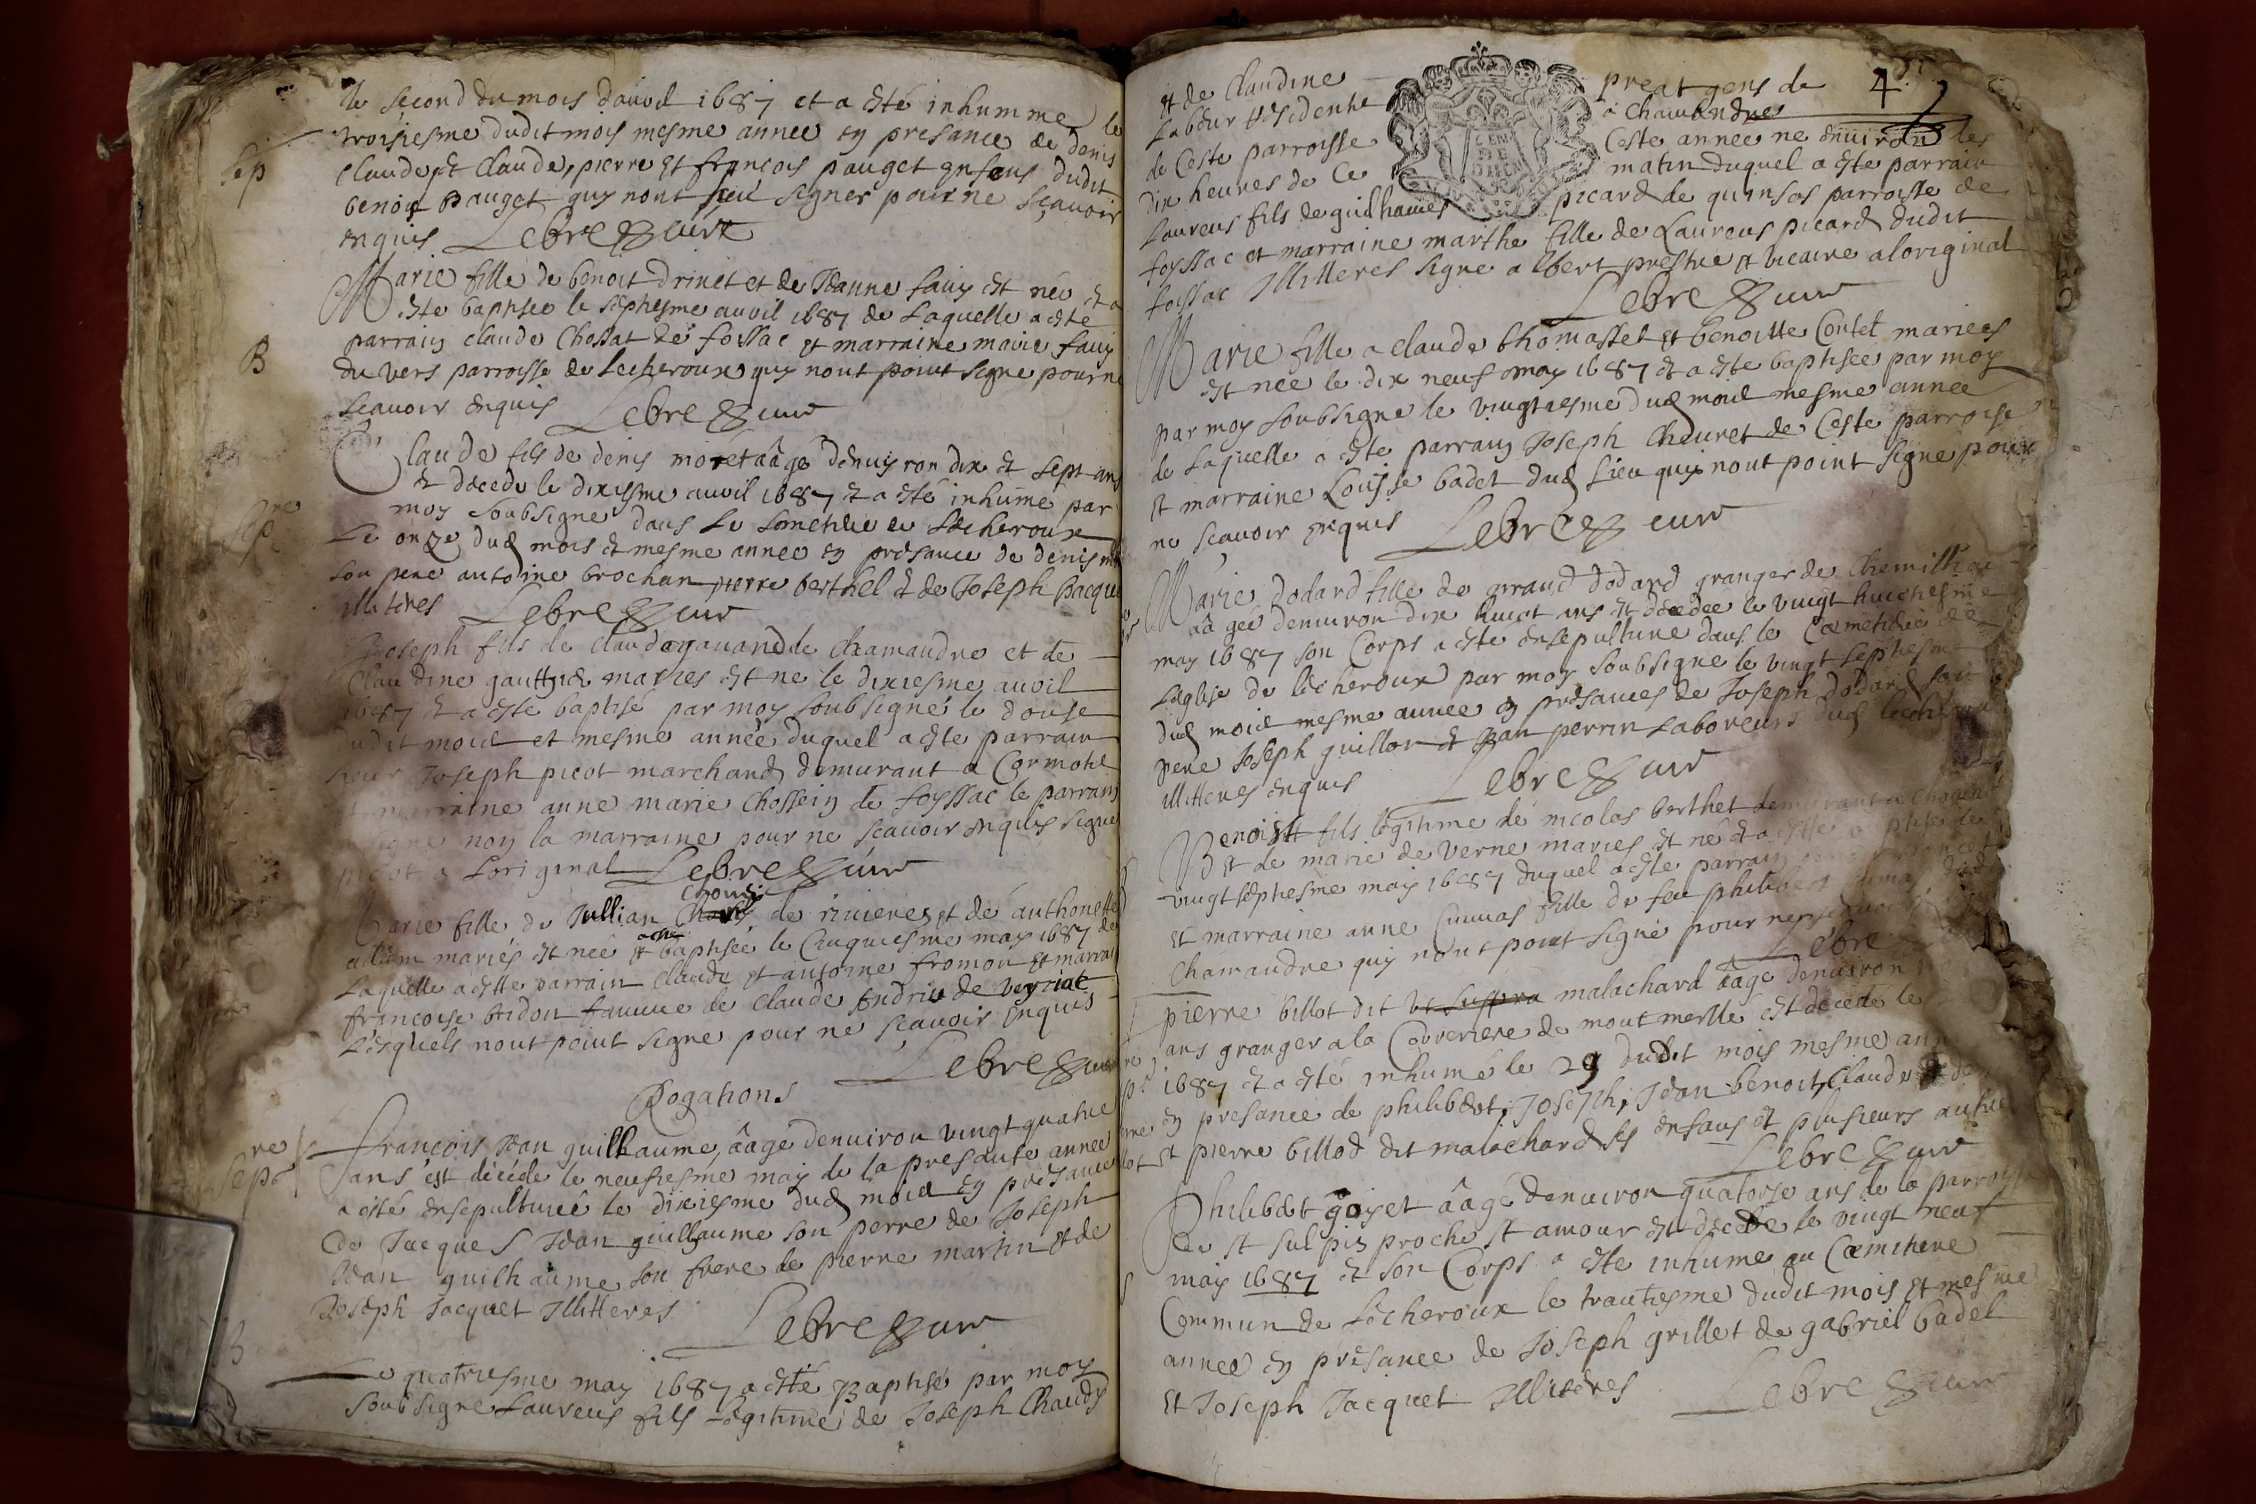 le second du mois dauvil 1687 et a esté inhumme le
troisiesme dudit mois mesme annee en presance de denis
claude et claude, pierre et francois pauget enfans dudit
Sep
benoit pauget quy nont sceu signer pour ne scavoir
enquis Lebre curé
Marie fille de benoit drinet et de Jeanne faux est née et a
esté baptisee le septiesme auvil 1687 de laquelle a esté
parrain claude Chossat de foissac et marraine marie faux
B
du vers parroisse de Lescheroux quy nont point signe pour ne
scavoir enquis Lebre curé
Claude fils de denis moret aâgé denviron dix et sept ans
et decede le dixiesme auvil 1687 et a esté inhume par
moy soubsigne dans le semetiere de Lecheroux
Le onze dud mois et mesme annee en presance de denis
son pere antoine brochan pierre berthel et de Joseph Jacquet
illiteres Lebre curé
Joseph fils de claude gavand de chamandre et de
Claudine gauthier maries est ne le dixiesme auvil
1687 et a esté baptisé par moy soubsigné le douse
dudit mois et mesme année duquel a esté parrain
sieur Joseph picot marchand demurant a Cormoz
et marraine anne marie Chossein de foyssac le parrain
signe non la marraine pour ne scavoir enquis signe
picot a Loriginal Lebre curé
Marie fille de Jullian de rivieres et de anthonette
adam mariés est née et a esté baptisée le Cinquiesme may 1687 de
Laquelle a esté parrain Claude et antoine fromon et marraine
francoise bridon famme de Claude de verriat
Lesquels nont point signe pour ne scavoir enquis
Lebre curé
Rogations
re
Sep
francois Jean guilhaume, aâgé denviron vingt quatre
ans est décéde le neufiesme may de la presante annee
a esté ensepulturé le dixiesme dud mois en presance
de Jacques Jean guilhaume son perre de Joseph
Jean guilhaume son frere de pierre martin et de
Joseph Jacquet Illitteres
Lebre curé
Le quatriesme may 1687 a esté Baptisé par moy
soubsigne Laurens fils Legitime de Joseph Chaudy
et de Claudine preat gens de
Labeur residente a Chamandre
de Ceste parroisse Ceste annee ne environ les
dix heures de Ce matin duquel a esté parrain
Laurens fils de guilhaumes picard de quinsos parroisse de
foyssac et marraine marthe fille de Laurens picard dudit
foissac Illitteres signe albert prestre et vicaire a loriginal
Lebre curé
Marie fille a claude thomasset et benoitte Contet mariees
est nee le dix neuf may 1687 et a esté baptisee par moy
par moy soubsigne le vingtiesme dud mois mesme annee
de Laquelle a esté parrain Joseph Chevret de Ceste parroise
et marraine Louise badet dud lieu quy nont point signe pour
ne scavoir enquis Lebre curé
Marie dodard fille de dodard granger de
aâgée denviron dix huict ans est decedee le vingt huictiesme
may 1687 son Corps a esté ensepulturé dans le Cemetiere de
Leglise de lecheroux par moy soubsigne le vingt septiesme
dud mois mesme annee en presances de Joseph dodard son
pere Joseph guillon et Jean perrin Laboreurs dud
illitteres enquis Lebre curé
Benoist fils legitime de nicolas berthet demurant a
et de marie de verne maries est né et a esté baptise le
vingt septiesme may 1687 duquel a esté parrain
et marraine anne Cumas fille de feu philibert Cumas
Chamandre quy nont point signé pour ne
Lebre
pierre billot dit malachard aâgé denviron
ans granger a la de mont merle est decede le
1687 et a esté inhumé le 29 dudit mois mesme annee
en presance de philibert, Joseph, Jean benoit, Claude
et pierre billod dit malachard ses enfans et plusieurs autres
Lebre curé
Philibert goyet aâgé denviron quatorse ans de la parroisse
de st sulpis proche st amour est decede le vingt neuf
may 1687 et son Corps a esté inhume au Cemitiere
Commun de Lécheroux le trantiesme dudit mois et mesme
annee en présance de Joseph grillet de gabriel badel
Et Joseph Jacquet Illiteres Lebre curé